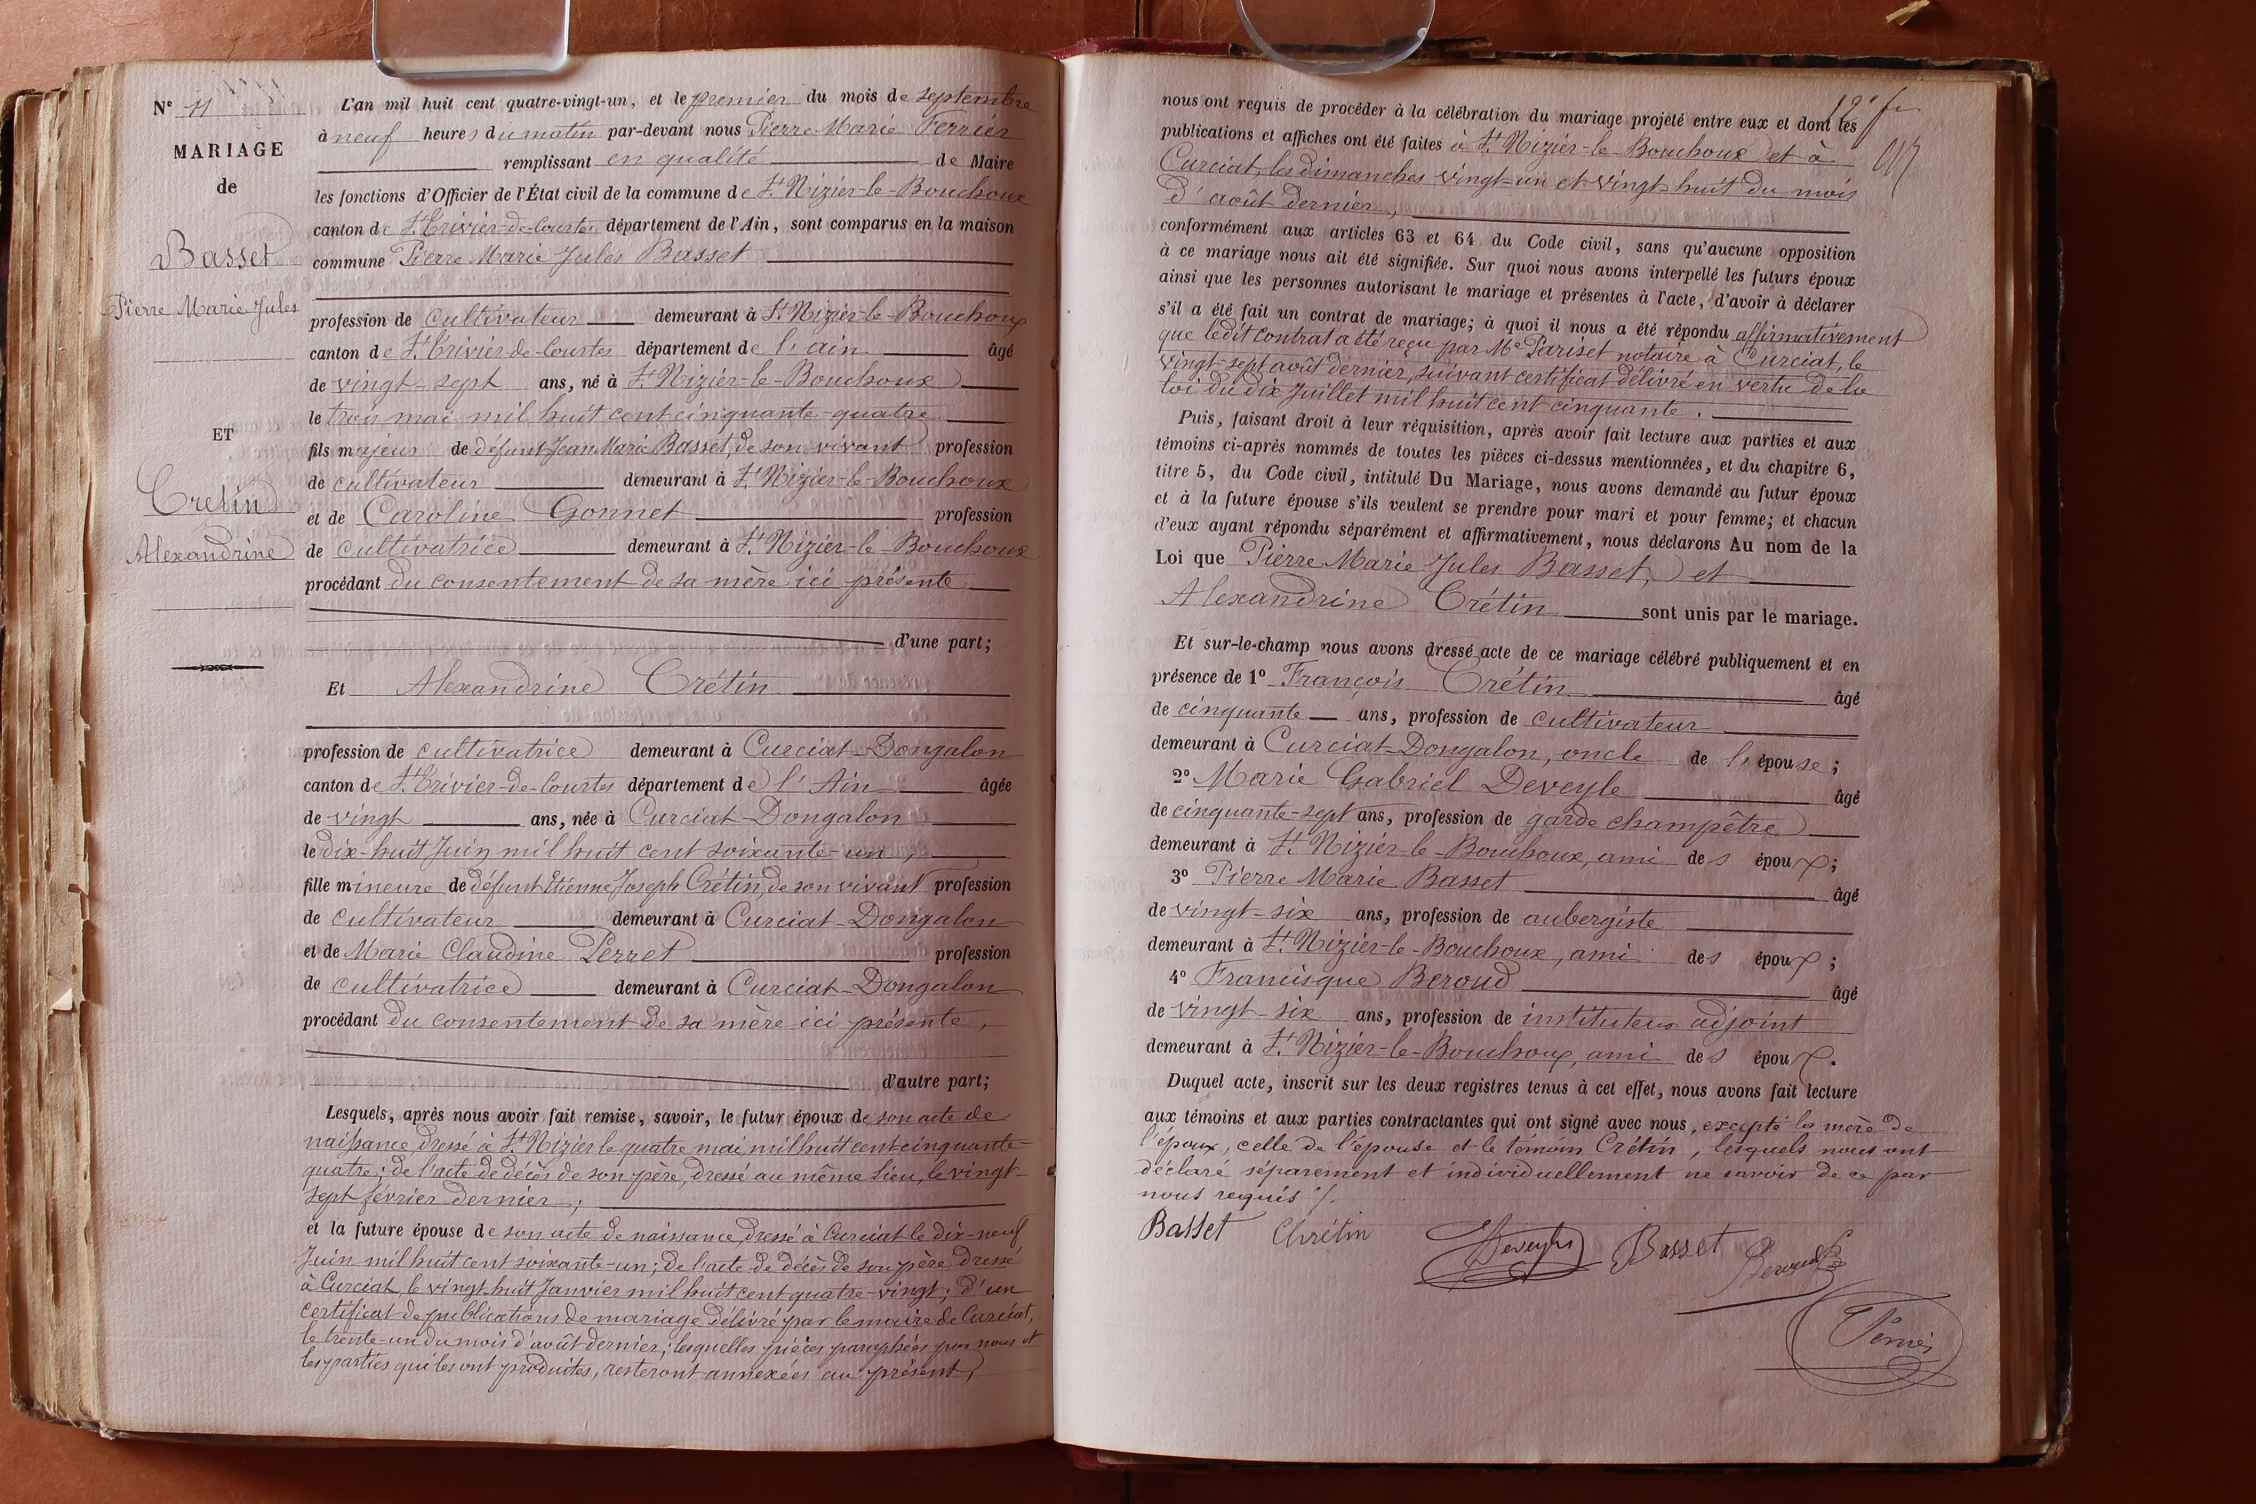 N° 11
MARIAGE
de
Basset
Pierre Marie Jules
ET
Cretin
Alexandrine
L'an mil huit cent quatre-vingt-un, et le premier du mois de septembre
à neuf heures du matin par-devant nous Pierre Marie Ferrier
remplissant en qualité de Maire
les fonctions d'Officier de l'État civil de la commune de St Nizier-le-Bouchoux
canton de St Trivier-de-Courtes département de l'Ain, sont comparus en la maison
commune Pierre Marie Jules Basset
profession de cultivateur demeurant à St Nizier-le-Bouchoux
canton de St Trivier-de-Courtes département de l'ain âgé
de vingt-sept ans, né à St Nizier-le-Bouchoux
le trois mai mil huit cent cinquante-quatre
fils majeur de défunt Jean Marie Basset, de son vivant profession
de cultivateur demeurant à St Nizier-le-Bouchoux
et de Caroline Gonnet profession
de cultivatrice demeurant à St Nizier-le-Bouchoux
procédant du consentement de sa mère ici présente
d'une part;
Et Alexandrine Crétin
profession de cultivatrice demeurant à Curciat-Dongalon
canton de St Trivier-de-Courtes département de l'Ain âgée
de vingt ans, née à Curciat-Dongalon
le dix-huit Juin mil huit cent soixante-un,
fille mineure de défunt Etienne Joseph Crétin, de son vivant profession
de cultivateur demeurant à Curciat-Dongalon
et de Marie Claudine Perret profession
de cultivatrice demeurant à Curciat-Dongalon
procédant du consentement de sa mère ici présente,
d'autre part;
Lesquels, après nous avoir fait remise, savoir, le futur époux de son acte de
naissance, dressé à St Nizier le quatre mai mil huit cent cinquante-
quatre; de l'acte de décès de son père, dressé au même lieu, le vingt-
sept février dernier;
et la future épouse de son acte de naissance, dressé à Curciat le dix-neuf
Juin mil huit cent soixante-un; de l'acte de décès de son père dressé
à Curciat, le vingt-huit Janvier mil huit cent quatre-vingt; d'un
certificat de publications de mariage délivré par le maire de Curciat,
le trente-un du mois d'août dernier; lesquelles pièces paraphées par nous et
les parties qui les ont produites, resteront annexées au présent,
19e fe
nous ont requis de procéder à la célébration du mariage projeté entre eux et dont les
publications et affiches ont été faites à St Nizier-le-Bouchoux et à
Curciat, les dimanches vingt-un et vingt-huit du mois
d'août dernier,
conformément aux articles 63 et 64 du Code civil, sans qu'aucune opposition
à ce mariage nous ait été signifiée. Sur quoi nous avons interpellé les futurs époux
ainsi que les personnes autorisant le mariage et présentes à l'acte, d'avoir à déclarer
s'il a été fait un contrat de mariage; à quoi il nous a été répondu affirmativement
que ledit contrat a été reçu par Me Pariset notaire à Curciat, le
vingt-sept août dernier, suivant certificat délivré en vertu de la
loi du dix Juillet mil huit cent cinquante.
Puis, faisant droit à leur réquisition, après avoir fait lecture aux parties et aux
témoins ci-après nommés de toutes les pièces ci-dessus mentionnées, et du chapitre 6,
titre 5, du Code civil, intitulé Du Mariage, nous avons demandé au futur époux
et à la future épouse s'ils veulent se prendre pour mari et pour femme; et chacun
d'eux ayant répondu séparément et affirmativement, nous déclarons Au nom de la
Loi que Pierre Marie Jules Basset, et
Alexandrine Crétin sont unis par le mariage.
Et sur-le-champ nous avons dressé acte de ce mariage célébré publiquement et en
présence de 1° François Crétin âgé
de cinquante ans, profession de cultivateur
demeurant à Curciat-Dongalon, oncle de l'épouse;
2° Marie Gabriel Deveyle âgé
de cinquante-sept ans, profession de garde champêtre
demeurant à St Nizier-le-Bouchoux, ami des époux;
3° Pierre Marie Basset âgé
de vingt-six ans, profession de aubergiste
demeurant à St Nizier-le-Bouchoux, ami des époux;
4° Francisque Beroud âgé
de vingt-six ans, profession de instituteur adjoint
demeurant à St Nizier-le-Bouchoux, ami des époux.
Duquel acte, inscrit sur les deux registres tenus à cet effet, nous avons fait lecture
aux témoins et aux parties contractantes qui ont signé avec nous, excepté la mère de
l'époux, celle de l'épouse et le témoin Crétin, lesquels nous ont
déclaré séparement et individuellement ne savoir de ce par
nous requis ./.
Basset Chrétin Deveyle Basset Beroud
Ferrier